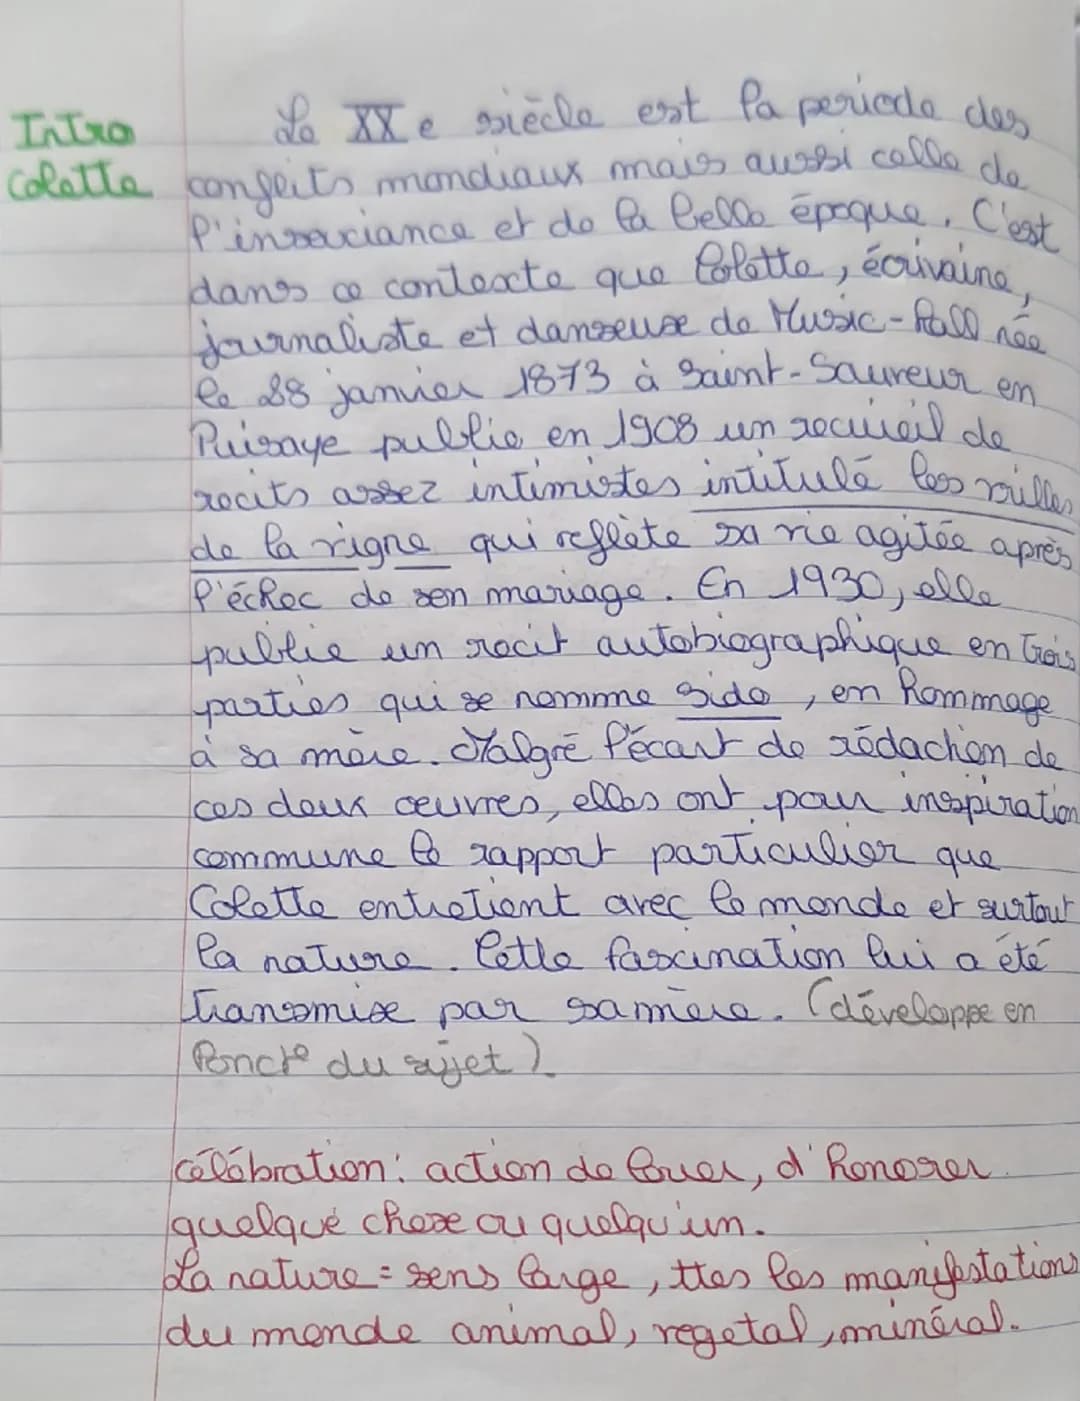 Intro
Colette
Le XXe siècle est la periode des
conflits mondiaux mais aussi celle de
l'insouciance et de la belle époque. C'est
dans ce contexte que Colette, écrivaine,
journaliste et danseuse de Music-hall née
le 28 janvier 1873 à Saint-Sauveur en
Puisaye publie en 1908 un recueil de
recits assez intimistes intitulé les vrilles
de la vigne qui reflète sa vie agitée après
l'échec de son mariage. En 1930, elle
publie un recit autobiographique en trois
parties qui se nomme Sido, en hommage
à sa mère. Malgré l'écart de rédaction de
ces deux œuvres, elles ont pour inspiration
commune le rapport particulier que
Colette entretient avec le monde et surtout
la nature. Cette fascination lui a été
transmise par sa mère. (développe en
fonct° du sujet)
célébration: action de louer, d'honorer
quelque chose ou quelqu'un.
La nature = sens large, ttes les manifestations
du monde animal, vegetal, minéral.